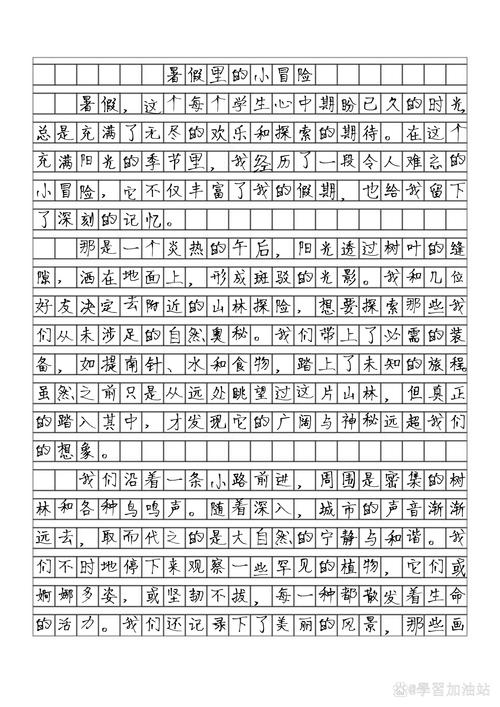 暑假里的小冒险
暑假，这个每个学生心中期盼已久的时光
总是充满了无尽的欢乐和探索的期待。在这个
充满阳光的季节里，我经历了一段令人难忘的
小冒险，它不仅丰富了我的假期，也给我留下
了深刻的记忆。
那是一个炎热的午后，阳光透过树叶的缝
隙，洒在地面上，形成斑驳的光影。我和几位
好友决定去附近的山林探险，想要探索那些我
们从未涉足的自然奥秘。我们带上了必需的装
备，如提南针、水和食物，踏上了未知的旅程。
虽然之前只是从远处眺望过这片山林，但真正
的踏入其中，才发现它的广阔与神秘远超我们
的想象。
我们沿着一条小路前进，周围是密集的树
林和各种鸟鸣声。随着深入，城市的声音渐渐
远去，取而代之的是大自然的宁静与和谐。我
们不时地停下来观察一些罕见的植物，它们或
婀娜多姿，或坚韧不拔，每一种都散发着生命
的活力。我们还记录下了美丽的风景，那些画
@學習加油站